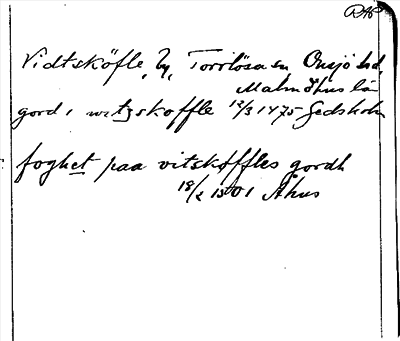 DAP
Vidtsköfle, by, Torrlösa sn Onsjö hd,
Malmöhus län
gord i witzskoffle 12/3 1475 Gedsholm
foghet paa vitskøffles gordh
18/2 1501 Åhus